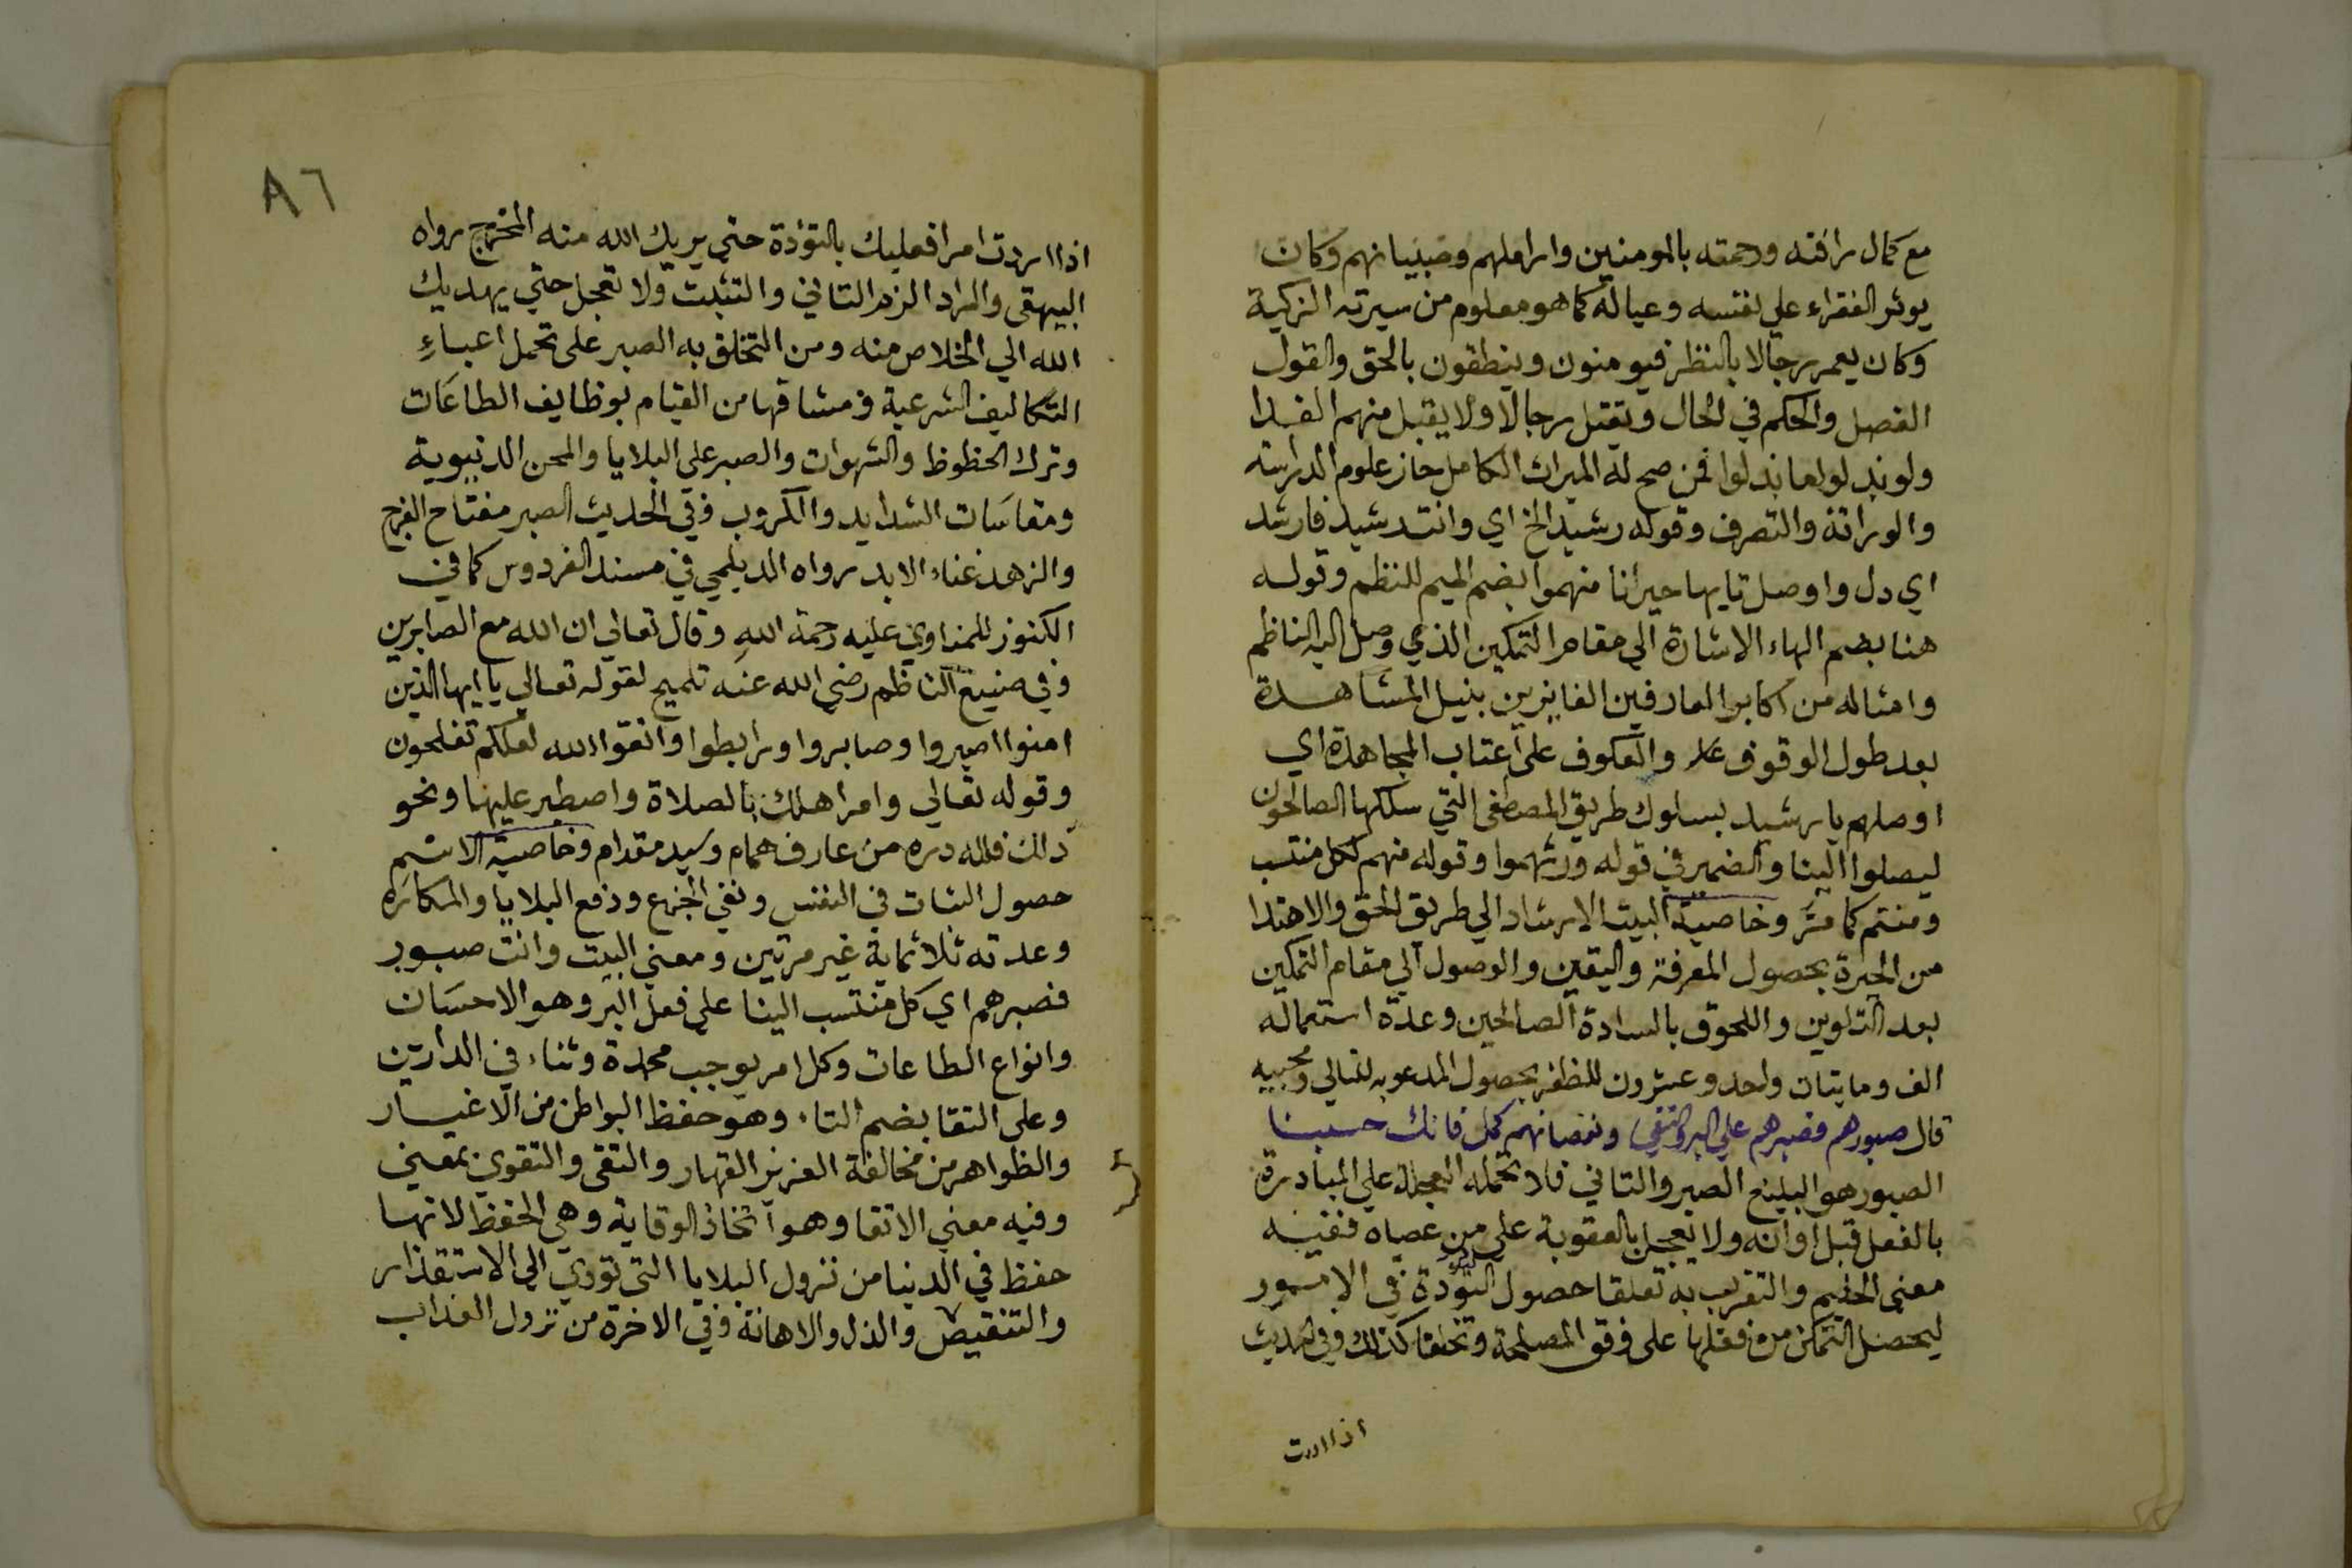 مع كمال رافته ورحمته بالمومنين واراملهم وصبيانهم وكان
يوثر الفقراء علي نفسه وعياله كما هو معلوم من سيرته الزكية
وكان يعمر رجالا بالنظر فيومنون وينطقون بالحق والقول
الفصل والحكم في الحال ويقتل رجالا ولا يقبل منهم الفدا
ولو بذلوا ما بذلوا فمن صح له الميراث الكامل حاز علوم الدراسة
والوراثة والتصرف وقوله رشيد الخ اي وانت رشيد فارشد
اي دل واوصل تايها حيرانا منهموا بضم الميم للنظم وقوله
هنا بضم الهاء الاشارة الي مقام التمكين الذي وصل اليه الناظم
وامثاله من اكابر العارفين الفايزين بنيل المشاهدة
بعد طول الوقوف والعكوف على اعتاب المجاهدة اي
اوصلهم يا رشيد بسلوك طريق المصطفي التي سلكها الصالحون
ليصلوا الينا والضمير في قوله ورثهموا وقوله منهم لكل منتسب
ومنتم كما مر وخاصية البيت الارشاد الي طريق الحق والاهتدا
من الحيرة بحصول المعرفة واليقين والوصول الي مقام التمكين
بعد التلوين واللحوق بالسادة الصالحين وعدة استعماله
الف ومايتان واحد وعشرون للظفر بحصول المدعو به لتاليه ومحبيه
قال صبورهم فصبرهم علي البر والتقي ونقصانهم كمل فانك حسبنا
الصبور هو البليغ الصبر والتاني فلا تحمله العجلة علي المبادرة
بالفعل قبل اوانه ولا يعجل بالعقوبة على من عصاه ففيه
معني الحليم والتقرب به تعلقا حصول التؤدة في الامور
ليحصل التمكن من فعلها على وفق المصلحة وتخلقا كذلك وفي الحديث
اذا اردت
٨٦
اذا اردت امرا فعليك بالتوءدة حتي يريك الله منه المخرج رواه
البيهقي والمراد الزم التاني والتثبت ولا تعجل حتي يهديك
الله الي الخلاص منه ومن التخلق به الصبر على تحمل اعباء
التكاليف الشرعية ومشاقها من القيام بوظايف الطاعات
وترك الحظوظ والشهوات والصبر علي البلايا والمحن الدنيوية
ومقاسات الشدايد والكروب وفي الحديث الصبر مفتاح الفرج
والزهد غناء الابد رواه الديلمي في مسند الفردوس كما في
الكنوز للمناوي عليه رحمة الله وقال تعالي ان الله مع الصابرين
وفي صنيع الناظم رضي الله عنه تلميح لقوله تعالي يا ايها الذين
امنوا اصبروا وصابروا ورابطوا واتقوا الله لعلكم تفلحون
وقوله تعالي وامر اهلك بالصلاة واصطبر عليها ونحو
ذلك فلله دره من عارف همام وسيد مقدام وخاصية الاسم
حصول الثبات في النفس ونفي الجزع ودفع البلايا والمكاره
وعدته ثلاثماية غير مرتين ومعني البيت وانت صبور
فصبرهم اي كل منتسب الينا علي فعل البر وهو الاحسان
وانواع الطاعات وكل امر يوجب محمدة وثناء في الدارين
وعلى التقا بضم التاء وهو حفظ البواطن من الاغيار
والظواهر من مخالفة العزيز القهار والتقى والتقوي بمعني
وفيه معني الاتقا وهو اتخاذ الوقاية وهي الحفظ لانها
حفظ في الدنيا من نزول البلايا التي تؤدي الي الاستقذار
والتنقيص والذل والاهانة وفي الاخرة من نزول العذاب